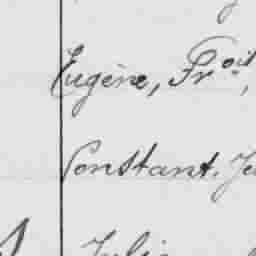 Eugène, Frois,
Constant. Je
Julie